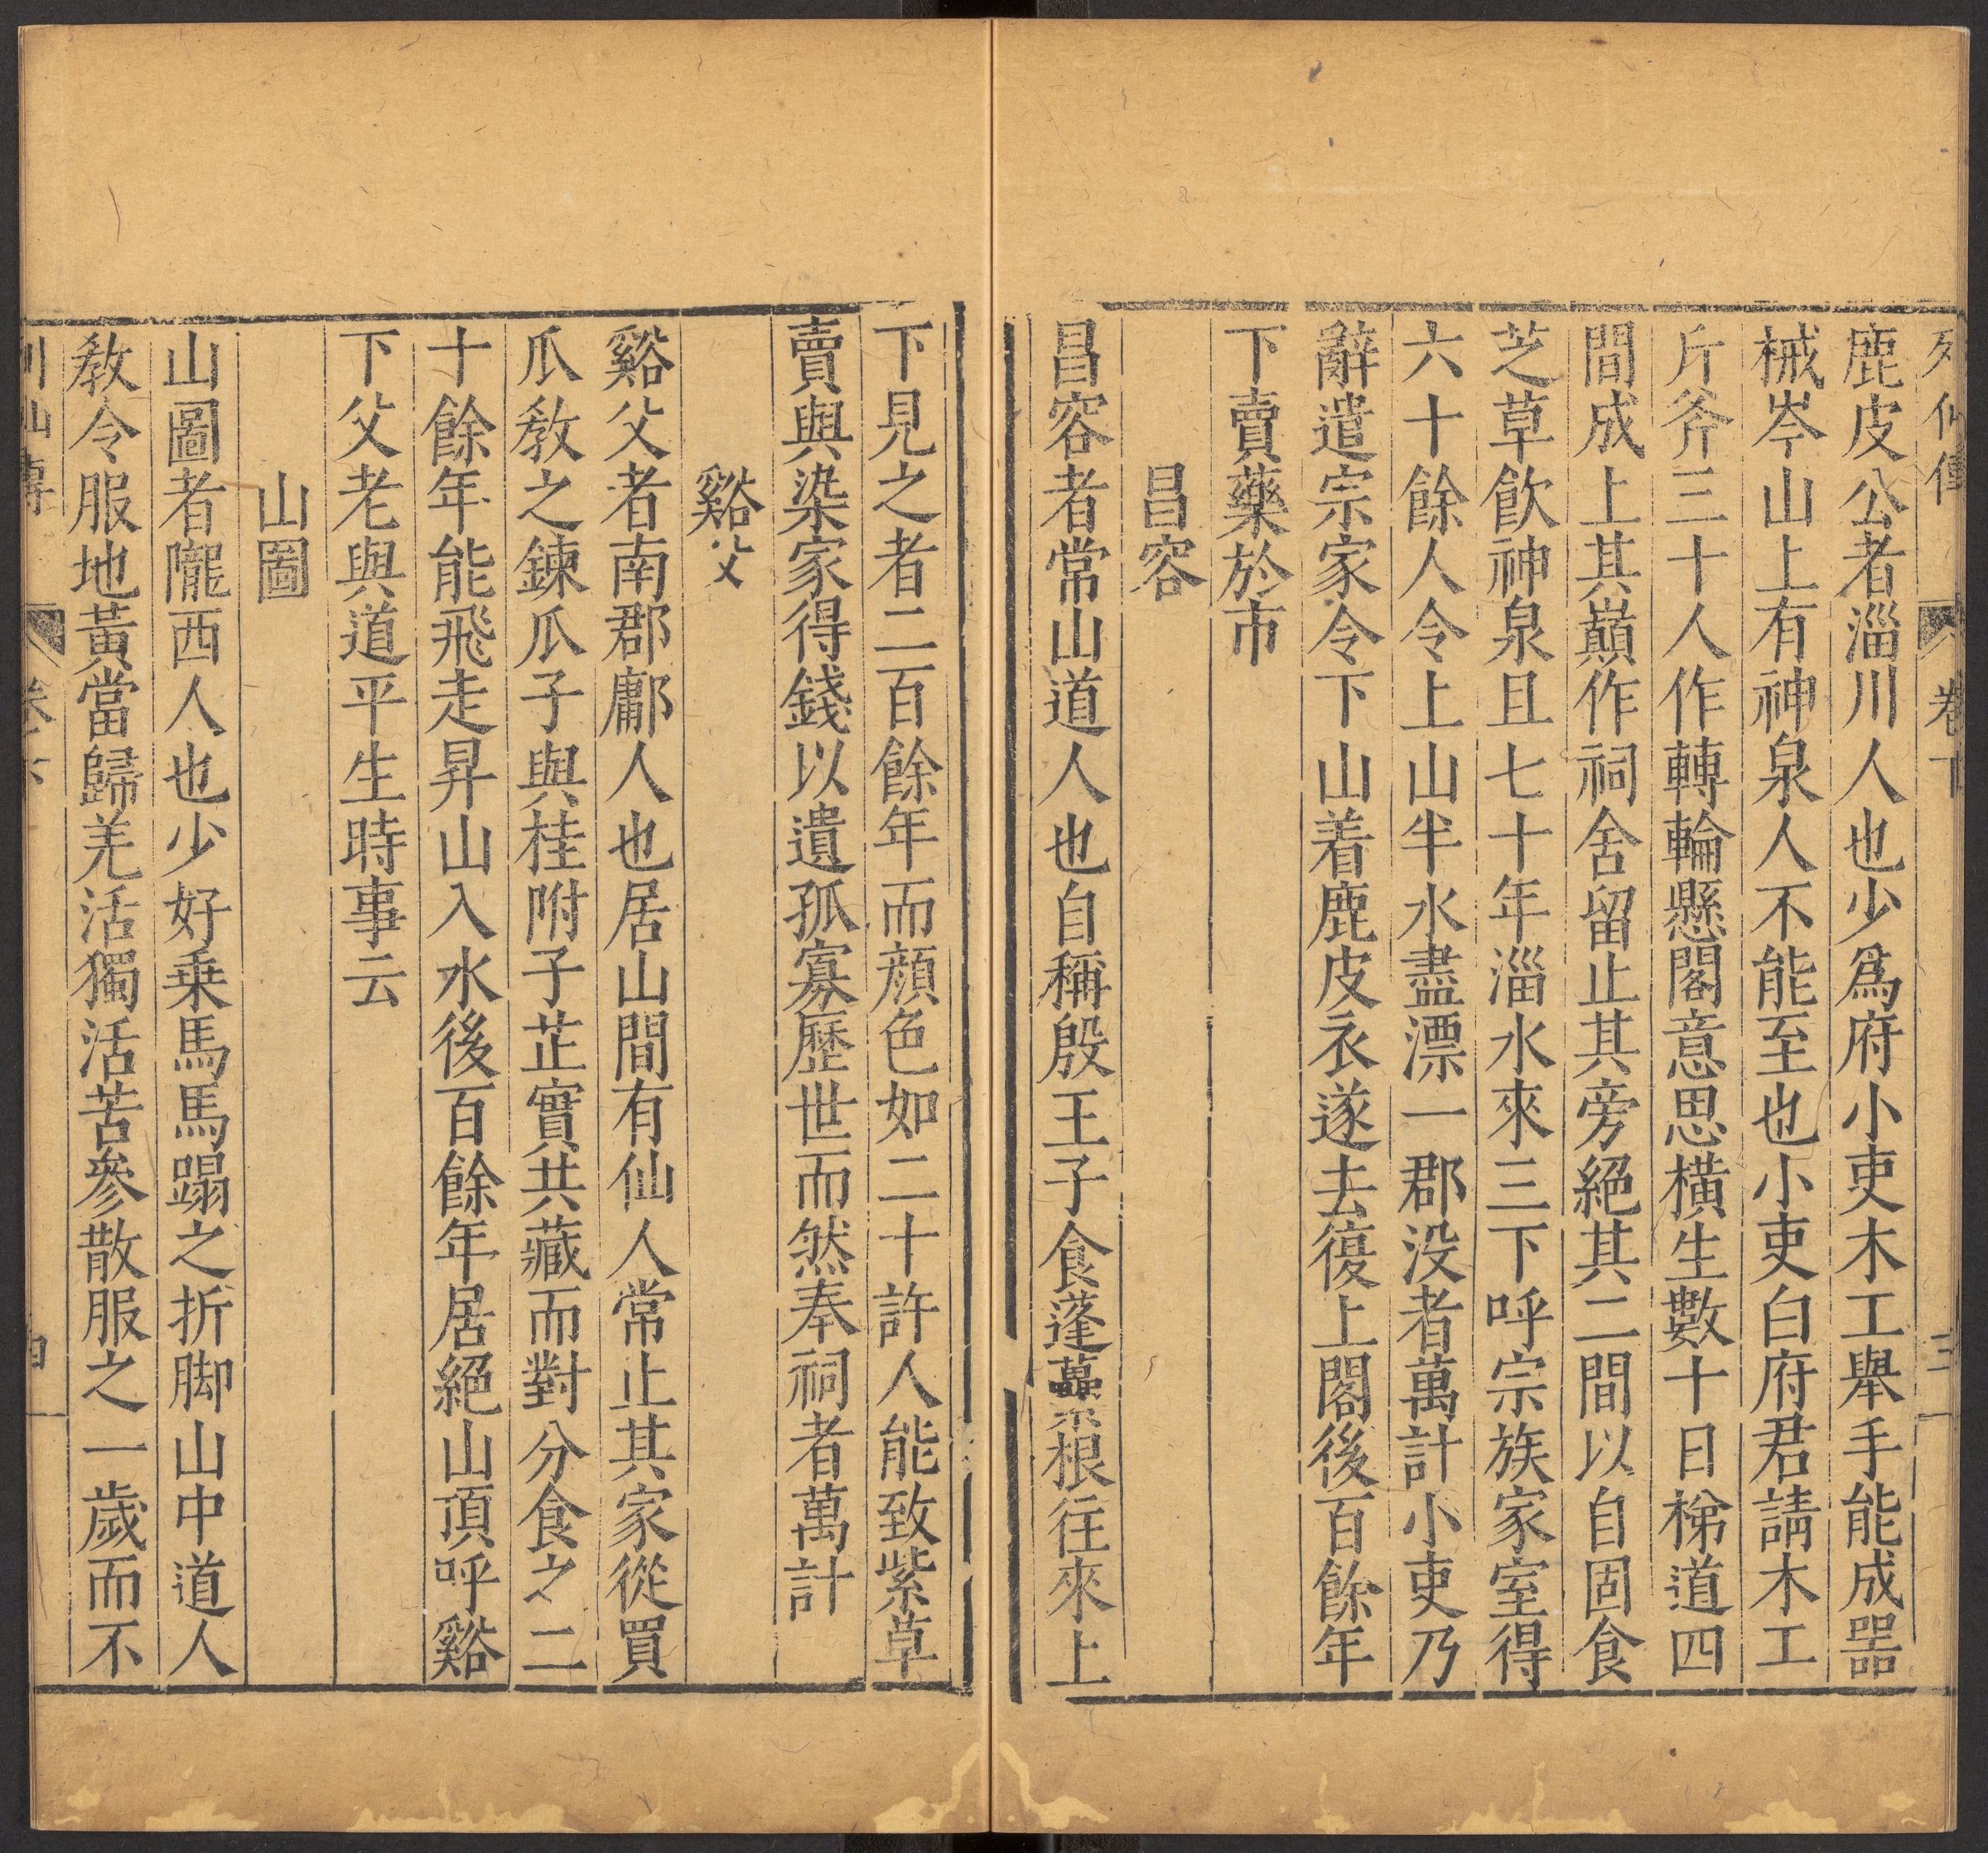 列仙傳 卷下 三
鹿皮公者淄川人也少爲府小吏木工舉手能成噐
械岑山上有神泉人不能至也小吏白府君請木工
斤斧三十人作轉輪懸閣意思橫生數十日梯道四
間成上其巔作祠舍留止其旁絕其二間以自固食
芝草飮神泉且七十年淄水來三下呼宗族家室得
六十餘人令上山半水盡漂一郡没者萬計小吏乃
辭遣宗家令下山着鹿皮衣遂去復上閣後百餘年
下賣藥於市
昌容
昌容者常山道人也自稱殷王子食蓬蔂根往來上
下見之者二百餘年而顔色如二十許人能致紫草
賣與染家得錢以遺孤寡歷世而然奉祠者萬計
谿父
谿父者南郡鄘人也居山間有仙人常止其家從買
瓜敎之鍊瓜子與桂附子芷實共藏而對分食之二
十餘年能飛走昇山入水後百餘年居絕山頂呼谿
下父老與道平生時事云
山圖
山圖者隴西人也少好乗馬馬蹋之折脚山中道人
敎令服地黃當歸羌活獨活苦參散服之一歲而不
列仙傳 卷下